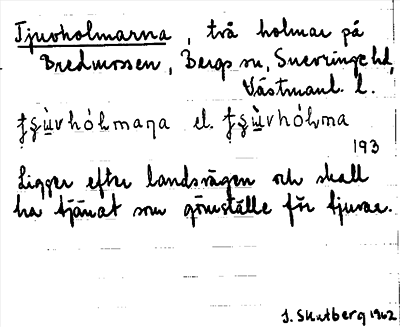 Tjuvholmarna, två holmar på
Bredmossen, Bergs sn, Snevringe hd,
Västmanl. l.
ʈʂùvhólmaɳa el. ʈʂùvhólma
193
Ligger efter landsvägen och skall
ha tjänat som gömställe för tjuvar.
J. Skutberg 1902